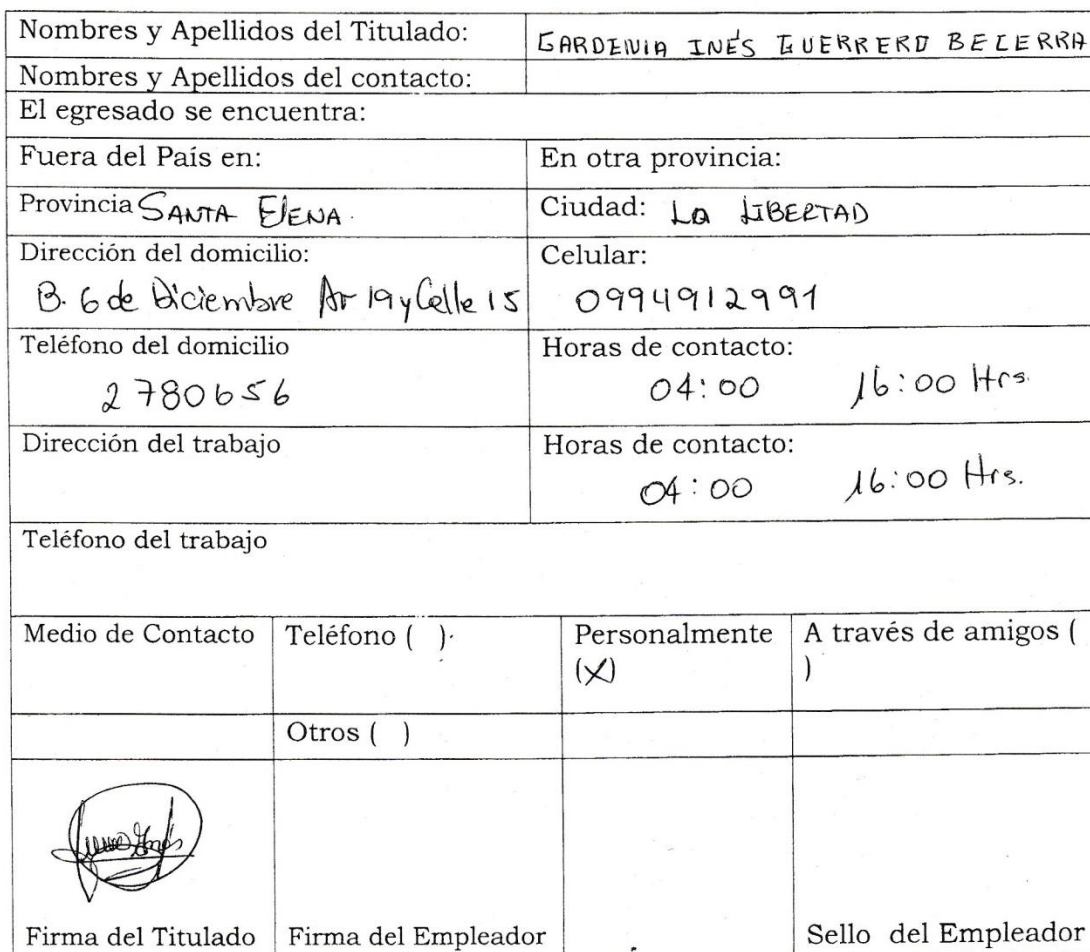 Nombres y Apellidos del Titulado: GARDENIA INÉS GUERRERO BECERRA
Nombres y Apellidos del contacto:
El egresado se encuentra:
Fuera del País en: En otra provincia:
Provincia SANTA ElENA. Ciudad: La LIBERTAD
Dirección del domicilio: Celular:
B. 6 de Diciembre Av 19 y Calle 15 0994912991
Teléfono del domicilio Horas de contacto:
2780656 04:00 16:00 Hrs.
Dirección del trabajo Horas de contacto:
04:00 16:00 Hrs.
Teléfono del trabajo
Medio de Contacto Teléfono ( ) Personalmente A través de amigos (
(X) )
Otros ( )
Firma del Titulado Firma del Empleador Sello del Empleador